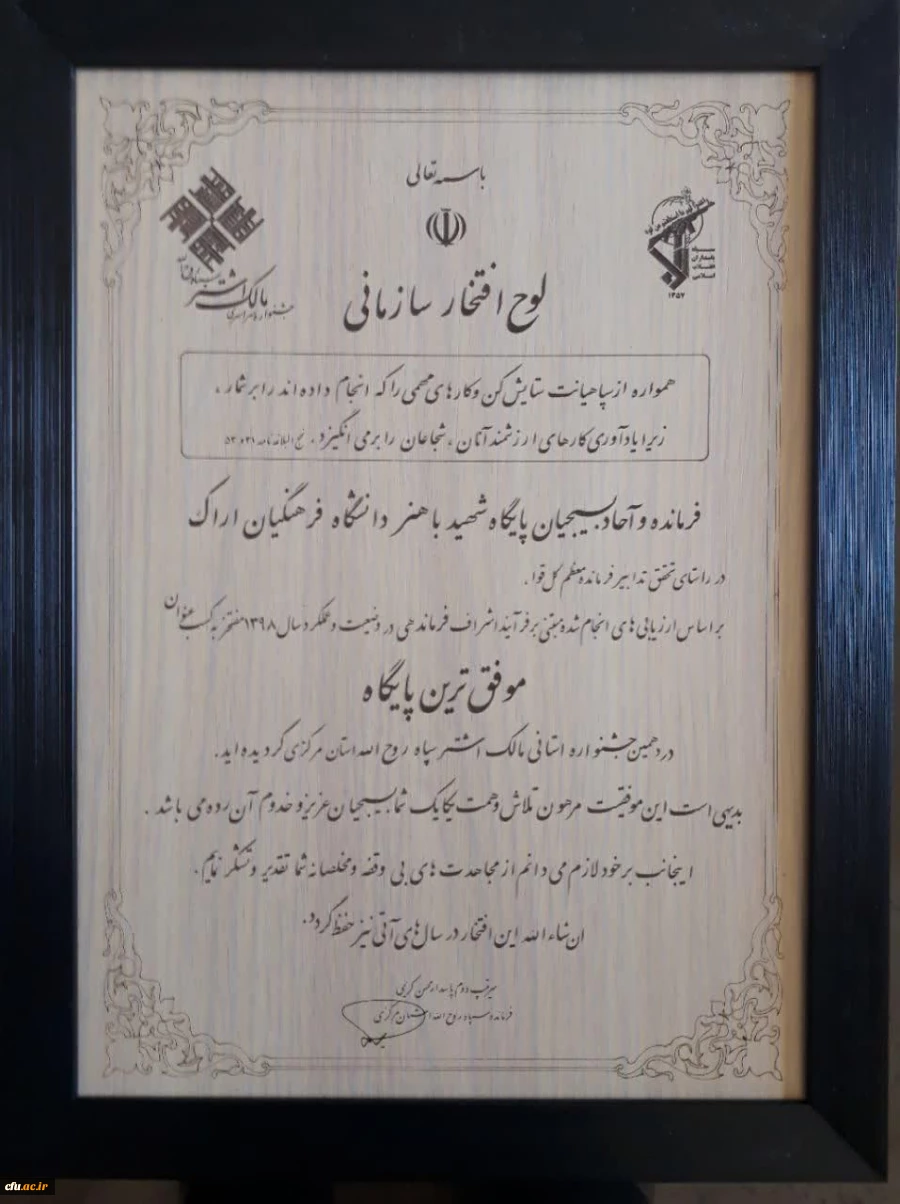 باسمه تعالی
سپاه
پاسداران
انقلاب
اسلامی
۱۳۵۷
مالک اشتر
لوح افتخار سازمانی
همواره از سپاهیانت ستایش کن و کارهای مهمی را که انجام داده اند را برشمار ،
زیرا یادآوری کارهای ارزشمند آنان ، شجاعان را برمی انگیزد . نهج البلاغه نامه ۵۳
فرمانده و آحاد بسیجیان پایگاه شهید باهنر دانشگاه فرهنگیان اراک
در راستای تحقق تدابیر فرمانده معظم کل قوا ،
بر اساس ارزیابی های انجام شده مبتنی بر فرآیند اشراف فرماندهی در وضعیت و عملکرد سال ۱۳۹۸ مفتخر به کسب عنوان
موفق ترین پایگاه
در دهمین جشنواره استانی مالک اشتر سپاه روح الله استان مرکزی گردیده اید .
بدیهی است این موفقیت مرهون تلاش و همت یکایک شما بسیجیان عزیز و خدوم آن رده می باشد .
اینجانب بر خود لازم می دانم از مجاهدت های بی وقفه و مخلصانه شما تقدیر و تشکر نمایم .
ان شاء الله این افتخار در سال های آتی نیز حفظ گردد .
سرتیپ دوم پاسدار محسن کریمی
فرمانده سپاه روح الله استان مرکزی
cfu.ac.ir